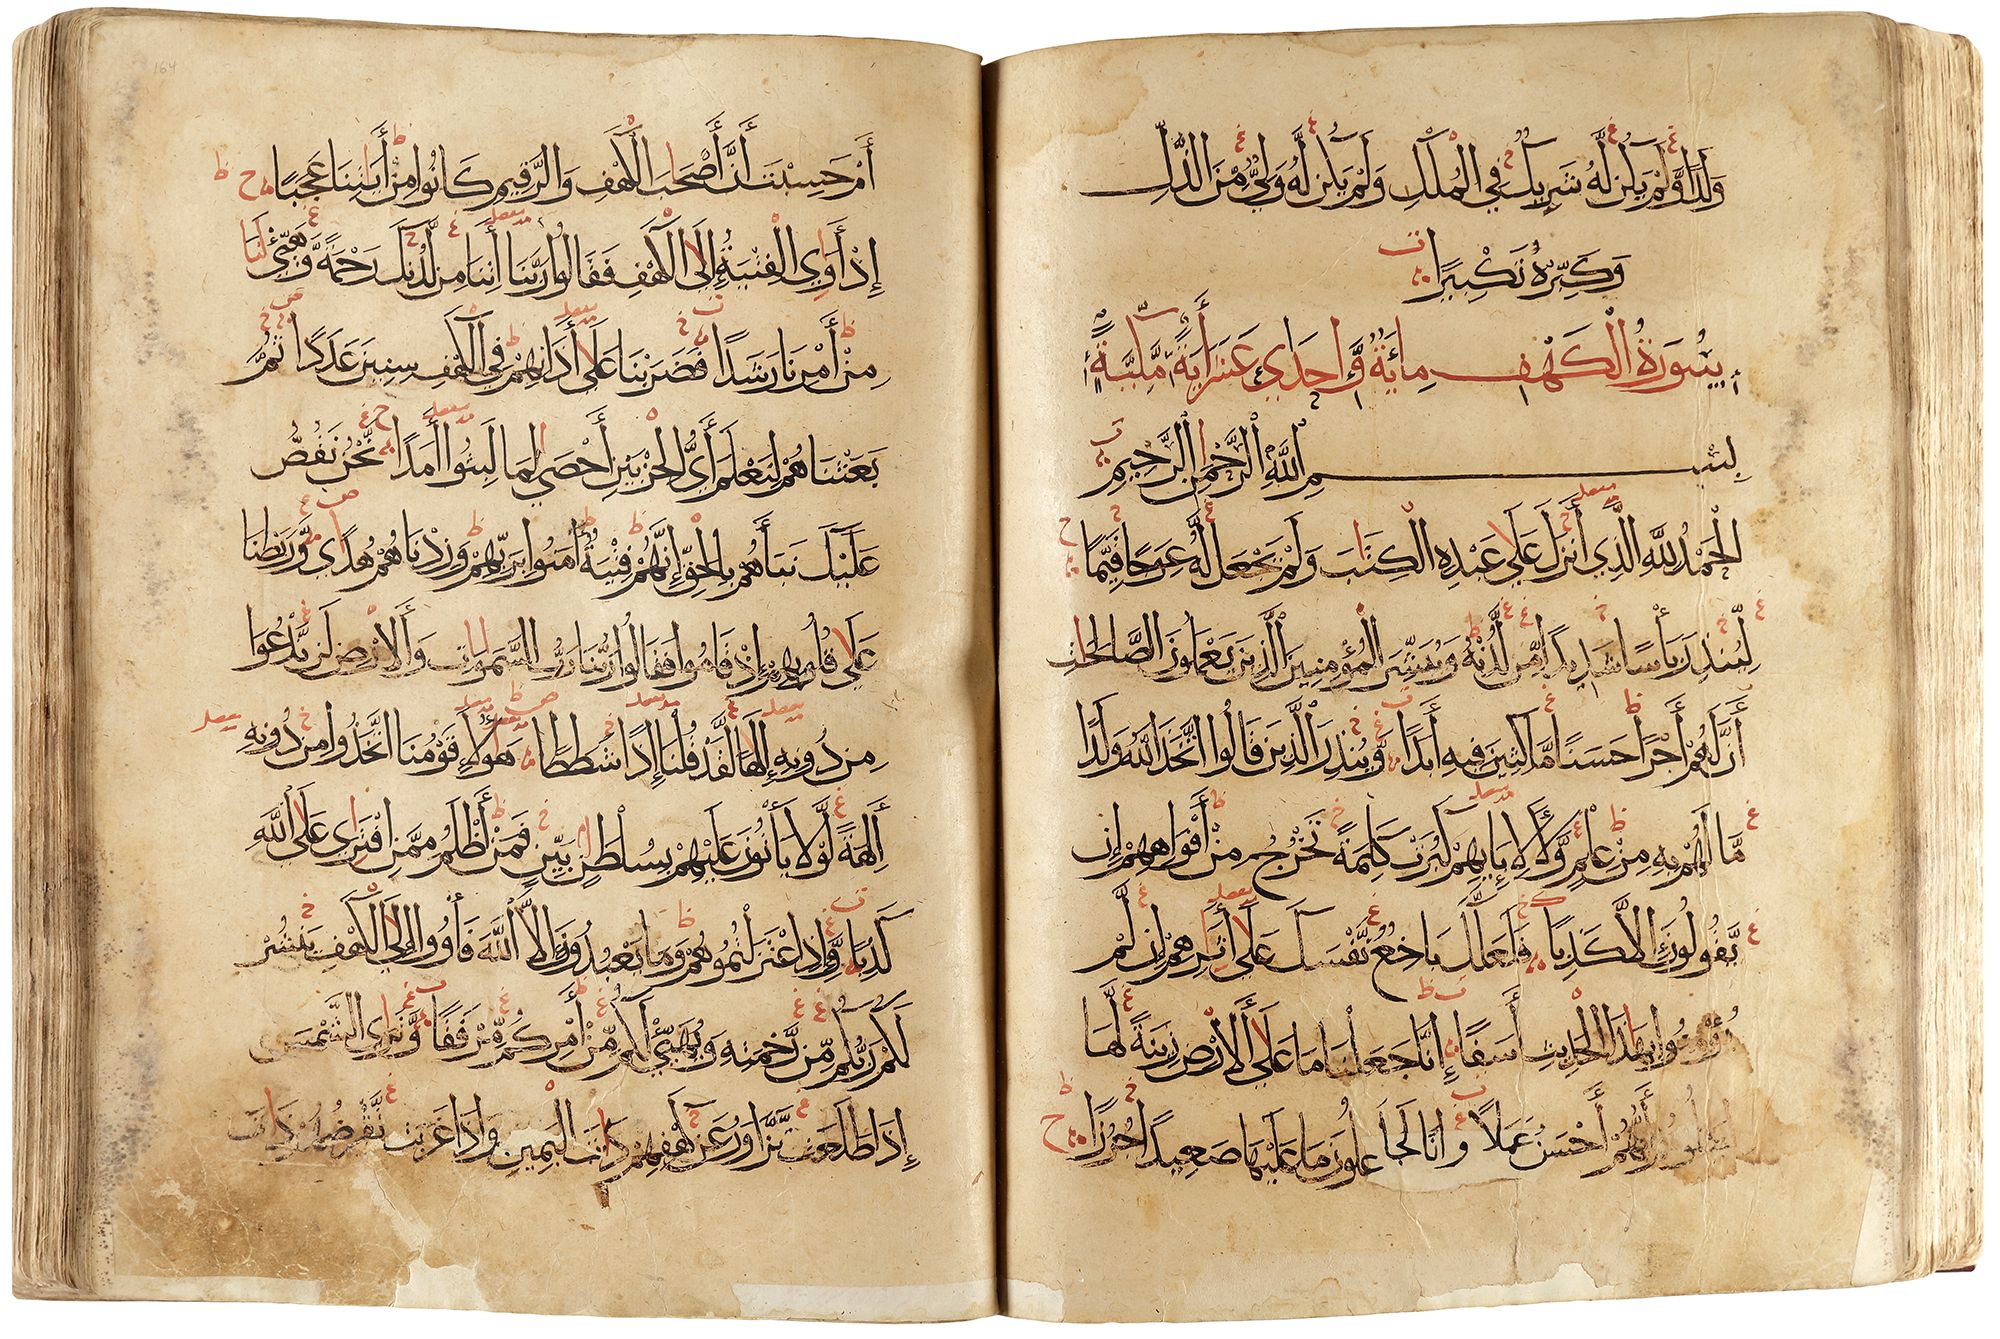 وَلَدًا وَّلَمْ يَكُن لَّهُ شَرِيكٌ فِي الْمُلْكِ وَلَمْ يَكُن لَّهُ وَلِيٌّ مِّنَ الذُّلِّ
وَكَبِّرْهُ تَكْبِيرًا
سُورَةُ الْكَهْفِ مِائَةٌ وَّاحِدَي عَشَرَ اٰيَةً مَّكِّيَّةٌ
بِسْمِ اللَّهِ الرَّحْمٰنِ الرَّحِيمِ
الْحَمْدُ لِلَّهِ الَّذِي أَنْزَلَ عَلَى عَبْدِهِ الْكِتَابَ وَلَمْ يَجْعَل لَّهُ عِوَجًا قَيِّمًا
لِّيُنْذِرَ بَأْسًا شَدِيدًا مِّن لَّدُنْهُ وَيُبَشِّرَ الْمُؤْمِنِينَ الَّذِينَ يَعْمَلُونَ الصَّالِحَاتِ
أَنَّ لَهُمْ أَجْرًا حَسَنًا مَّاكِثِينَ فِيهِ أَبَدًا وَّيُنْذِرَ الَّذِينَ قَالُوا اتَّخَذَ اللَّهُ وَلَدًا
مَّا لَهُمْ بِهِ مِنْ عِلْمٍ وَّلَا لِاٰبَائِهِمْ كَبُرَتْ كَلِمَةً تَخْرُجُ مِنْ أَفْوَاهِهِمْ إِن
يَّقُولُونَ إِلَّا كَذِبًا فَلَعَلَّكَ بَاخِعٌ نَّفْسَكَ عَلَى اٰثَارِهِمْ إِن لَّمْ
يُؤْمِنُوا بِهَذَا الْحَدِيثِ أَسَفًا إِنَّا جَعَلْنَا مَا عَلَى الْأَرْضِ زِينَةً لَّهَا
لِنَبْلُوَهُمْ أَيُّهُمْ أَحْسَنُ عَمَلًا وَإِنَّا لَجَاعِلُونَ مَا عَلَيْهَا صَعِيدًا جُرُزًا
164
أَمْ حَسِبْتَ أَنَّ أَصْحَابَ الْكَهْفِ وَالرَّقِيمِ كَانُوا مِنْ اٰيَاتِنَا عَجَبًا
إِذْ أَوَى الْفِتْيَةُ إِلَى الْكَهْفِ فَقَالُوا رَبَّنَا اٰتِنَا مِن لَّدُنْكَ رَحْمَةً وَّهَيِّئْ لَنَا
مِنْ أَمْرِنَا رَشَدًا فَضَرَبْنَا عَلَى اٰذَانِهِمْ فِي الْكَهْفِ سِنِينَ عَدَدًا ثُمَّ
بَعَثْنَاهُمْ لِنَعْلَمَ أَيُّ الْحِزْبَيْنِ أَحْصَى لِمَا لَبِثُوا أَمَدًا نَّحْنُ نَقُصُّ
عَلَيْكَ نَبَأَهُمْ بِالْحَقِّ إِنَّهُمْ فِتْيَةٌ اٰمَنُوا بِرَبِّهِمْ وَزِدْنَاهُمْ هُدًى وَّرَبَطْنَا
عَلَى قُلُوبِهِمْ إِذْ قَامُوا فَقَالُوا رَبُّنَا رَبُّ السَّمَوَاتِ وَالْأَرْضِ لَن نَّدْعُوَا
مِن دُونِهِ إِلَهًا لَّقَدْ قُلْنَا إِذًا شَطَطًا هَؤُلَاءِ قَوْمُنَا اتَّخَذُوا مِنْ دُونِهِ
اٰلِهَةً لَّوْلَا يَأْتُونَ عَلَيْهِمْ بِسُلْطَانٍ بَيِّنٍ فَمَنْ أَظْلَمُ مِمَّنِ افْتَرَى عَلَى اللَّهِ
كَذِبًا وَّإِذِ اعْتَزَلْتُمُوهُمْ وَمَا يَعْبُدُونَ إِلَّا اللَّهَ فَأْوُوا إِلَى الْكَهْفِ يَنْشُرْ
لَكُمْ رَبُّكُم مِّن رَّحْمَتِهِ وَيُهَيِّئْ لَكُم مِّنْ أَمْرِكُم مِّرْفَقًا وَّتَرَى الشَّمْسَ
إِذَا طَلَعَت تَّزَّاوَرُ عَنْ كَهْفِهِمْ ذَاتَ الْيَمِينِ وَإِذَا غَرَبَت تَّقْرِضُهُمْ ذَاتَ